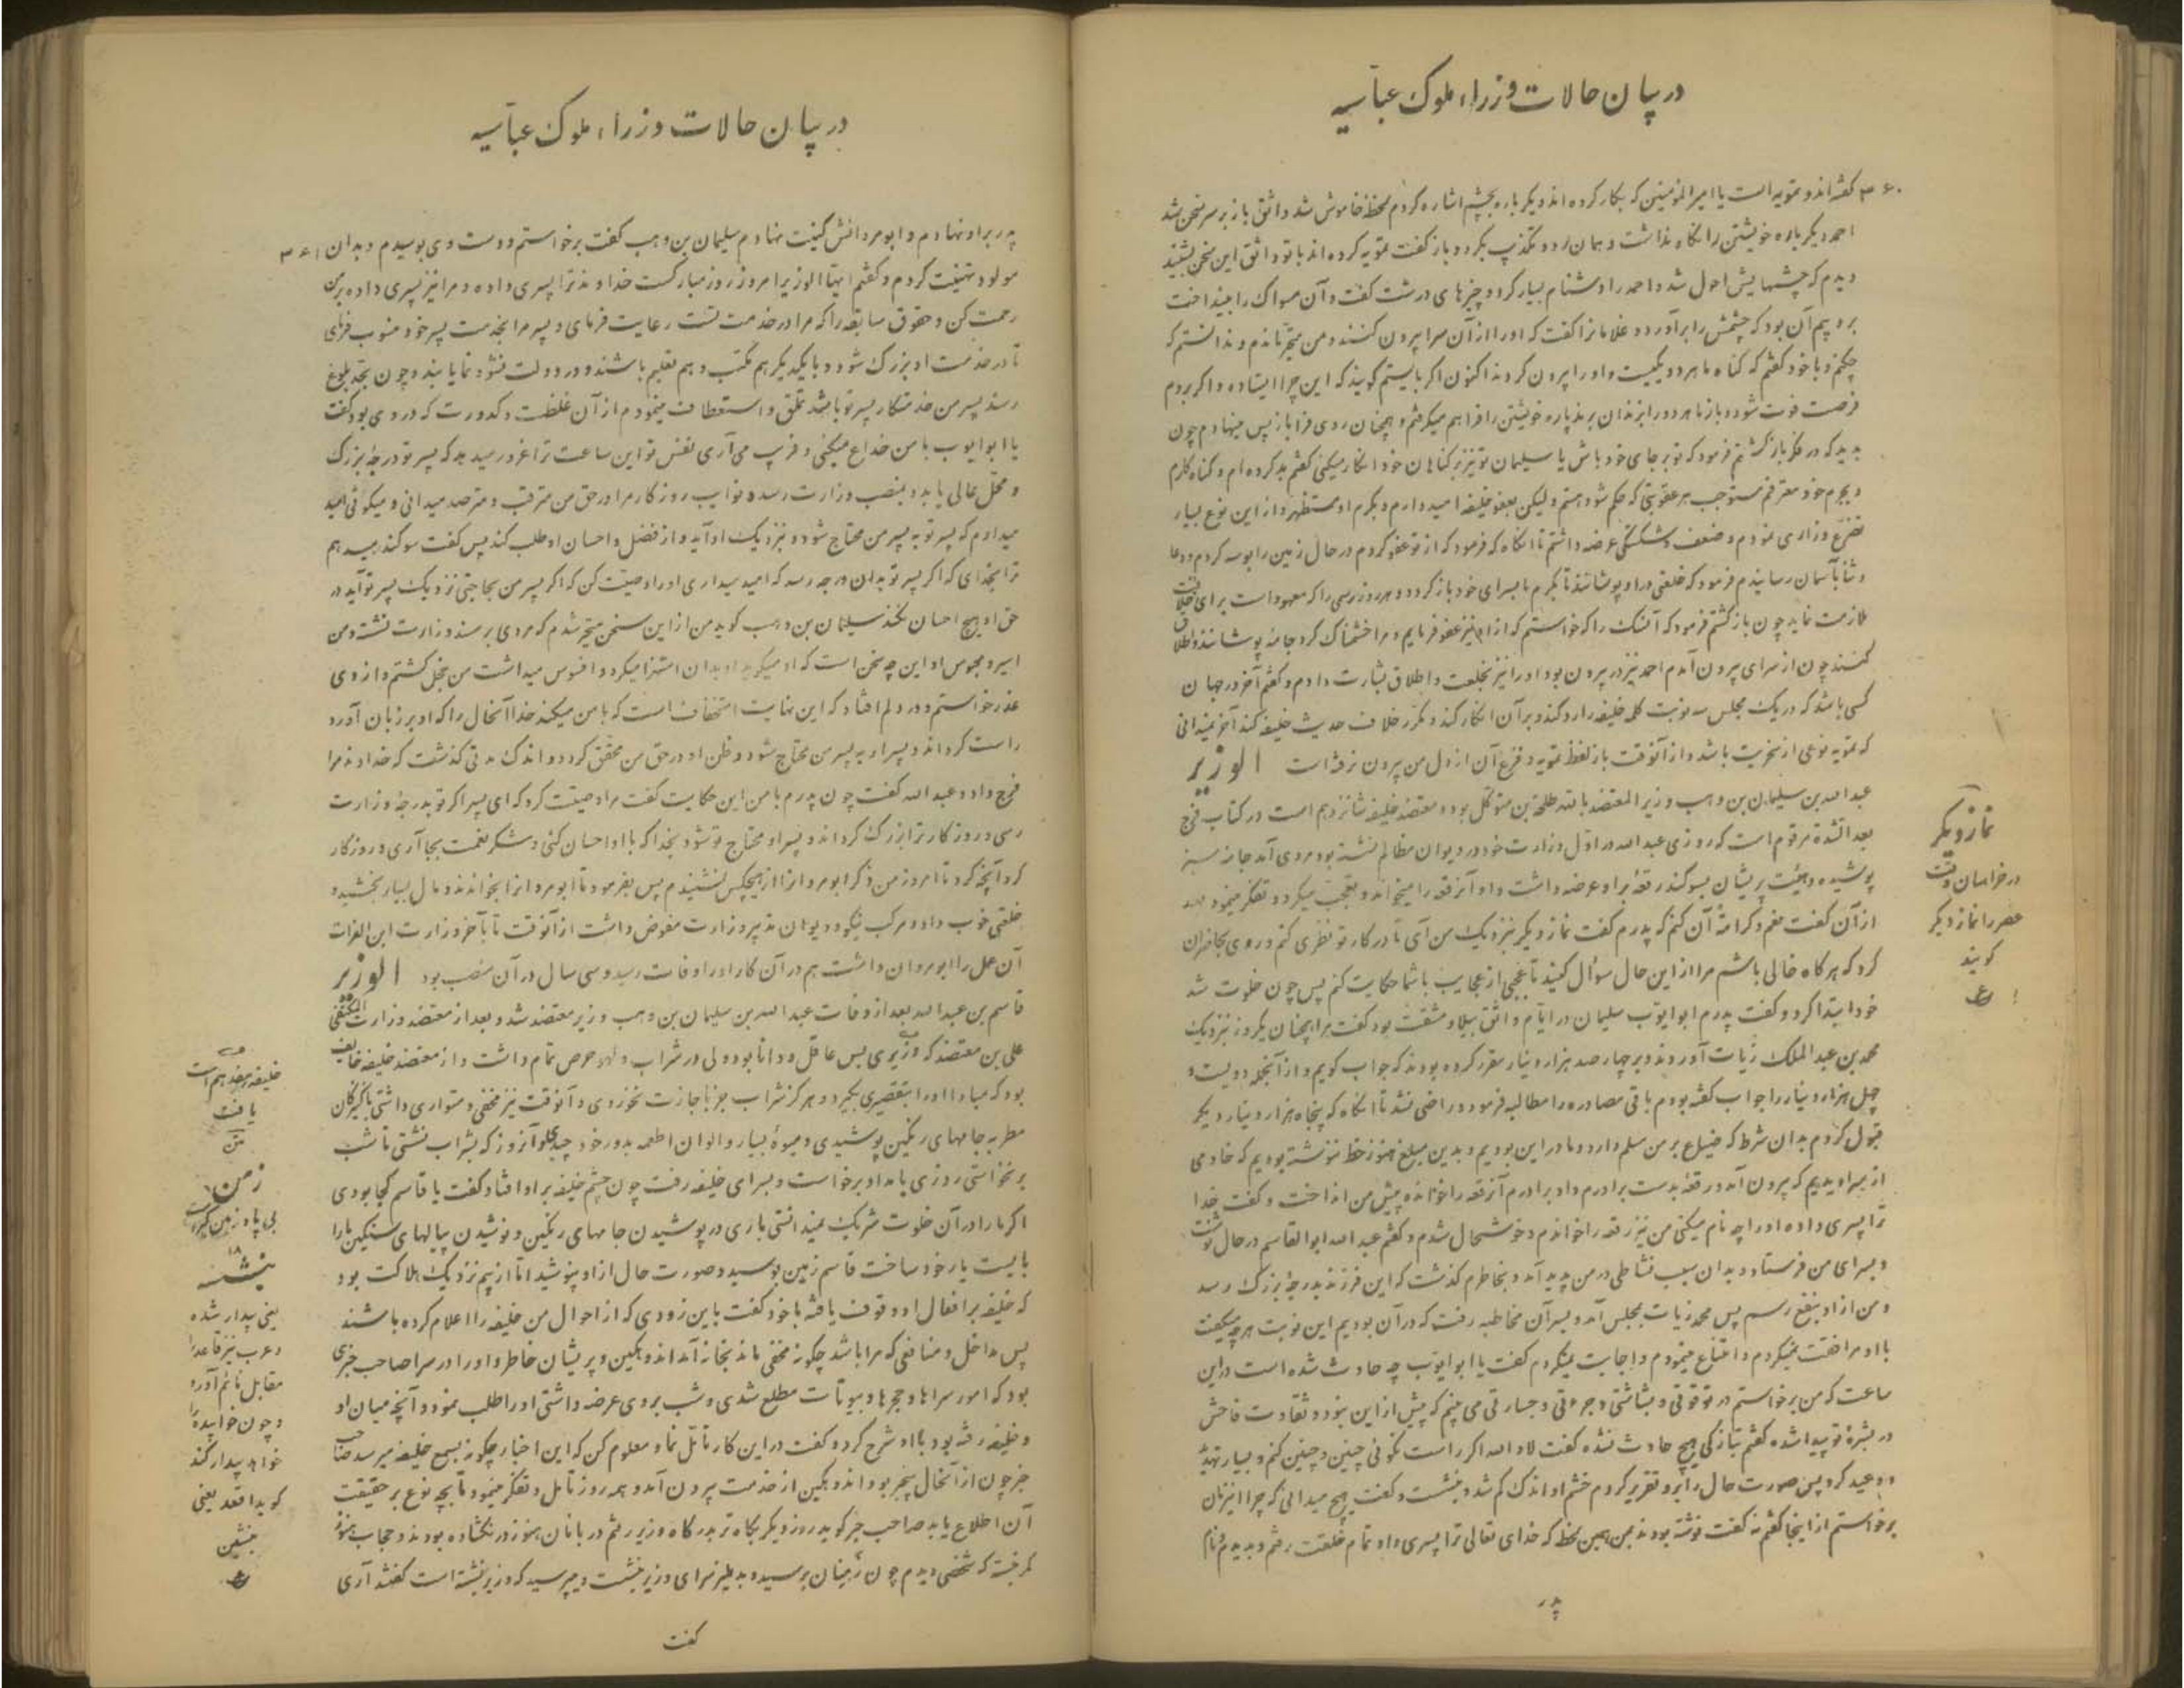 در بیان حالات وزراء ملوک عباسیه
۳۶۰ گفته‌اند و تمویه است یا امیرالمؤمنین که بکار کرده‌اند دیگر باره بچشم اشاره کردم لحظهٔ خاموش شد واثق باز بر سر سخن شد
احمد دیگر باره خویشتن را نگاه نداشت و همان رد و تکذیب بکرد و باز گفت تمویه کرده‌اند با تو واثق این سخن بشنید
دیدم که چشمهایش احول شد و احمد را دشنام بسیار کرد و چیزهای درشت گفت و آن مسواک را بینداخت
بر و بیم آن بود که چشمش را برآورد و غلامانرا گفت که او را از آن سرا بیرون کنند و من متحیر بماندم و ندانستم که
چکنم و با خود گفتم که گناه ما هر دو یکیست و او را بیرون کردند اکنون اگر بایستم گویند که این چرا ایستاده و اگر بروم
فرصت فوت شود و باز ما هر دو را بزندان برند پاره خویشتن را فراهم میگرفتم و همچنان روی فرا باز پس مینهادم چون
بدید که در فکر باز گشتم فرمود که تو بر جای خود باش یا سلیمان تو نیز بر گناهان خود انکار میکنی گفتم بد کرده‌ام و گناه کارم
و بجرم خود معترفم مستوجب هر عقوبتی که حکم شود هستم ولیکن بعفو خلیفه امیدوارم و بکرم او مستظهر و از این نوع بسیار
تضرع و زاری نمودم و ضعف و شکستگی عرضه داشتم تا آنگاه که فرمود که از تو عفو کردم در حال زمین را بوسه کردم و دعا
و ثنا بآسمان رسانیدم فرمود که خلعتی در او پوشانند تا بکرم ما بسرای خود باز گردد و هر روز رسمی را که معهود است برای خلافت
ملازمت نماید چون باز گشتم فرمود که آنسگ را که خواستم که از او نیز عفو فرمایم و مرا خشمناک کرد جامه پوشانند و اطلاق
کنند چون از سرای بیرون آمدم احمد نیز در بیرون بود او را نیز بخلعت و اطلاق بشارت دادم و گفتم آخر در جهان
کسی باشد که در یک مجلس سه نوبت کلمه خلیفه را رد کند و بر آن انکار کند و مکرر خلاف حدیث خلیفه کند آخر نمیدانی
که تمویه نوعی از سخریت باشد و از آنوقت باز لفظ تمویه و فزع آن از دل من بیرون نرفته است الوزیر
عبدالله بن سلیمان بن وهب وزیر المعتضد بالله طلحة بن متوکل بود و معتضد خلیفه شانزدهم است در کتاب فرج
بعد الشدة مرقوم است که روزی عبدالله در اول وزارت خود در دیوان مظالم نشسته بود مردی آمد جامه سبز
پوشیده و هیئت پریشان بسوگند رقعه بر او عرضه داشت و او آنرقعه را میخواند و تعجب میکرد و تفکر مینمود بعد
از آن گفت نعم و کرامة آن کنم که پدرم گفت نماز دیگر نزدیک من آی تا در کار تو نظری کنم و روی بحاضران
کرد که هر گاه خالی باشم مرا از این حال سؤال کنید تا عجبی از عجایب با شما حکایت کنم پس چون خلوت شد
خود ابتدا کرد و گفت پدرم ابوایوب سلیمان در ایام واثق ببلا و مشقت بود گفت مرا همچنان یکروز نزدیک
محمد بن عبدالملک زیات آوردند و بر چهار صد هزار دینار مقرر کرده بودند که جواب گویم و از آنجمله دویست و
چهل هزار دینار را جواب گفته بودم باقی مصادره را مطالبه فرمود و راضی نشد تا آنگاه که پنجاه هزار دینار دیگر
قبول کردم بدان شرط که ضیاع بر من مسلم دارد و ما در این بودیم و بدین مبلغ هنوز خط ننوشته بودیم که خادمی
از سرا دیدیم که بیرون آمد و رقعه بدست برادرم داد برادرم آنرقعه را خوانده پیش من انداخت و گفت خدا
ترا پسری داده او را چه نام میکنی من نیز رقعه را خواندم و خوشحال شدم و گفتم عبدالله ابوالقاسم در حال نوشت
و بسرای من فرستاد و بدان سبب نشاطی در من پدید آمد و بخاطرم گذشت که این فرزند بدرجهٔ بزرگ رسد
و من از او بنفع رسم پس محمد زیات بمجلس آمد و بسر آن مخاطبه رفت که در آن بودیم این نوبت هر چه میگفت
با او موافقت نمیکردم و امتناع مینمودم و اجابت نمیکردم گفت یا ابوایوب چه حادث شده است در این
ساعت که من برخواستم در تو قوتی و بشاشتی و جرءتی و جسارتی می‌بینم که پیش از این نبود و تفاوت فاحش
در بشرهٔ تو پیدا شده گفتم بتازگی هیچ حادث نشده گفت لا والله اگر راست نگوئی چنین و چنین کنم و بسیار تهدید
و وعید کرد پس صورت حال را بر او تقریر کردم خشم او اندک کم شد و بنشست و گفت هیچ میدانی که چرا این زمان
برخواستم از اینجا گفتم نه گفت نوشته بودند بمن بهمین لحظه که خدای تعالی ترا پسری داد تمام خلقت رفتم و بدیدم و نام
پدر
نماز دیگر
در خراسان وقت
عصر را نماز دیگر
گویند
در بیان حالات وزراء ملوک عباسیه
پدر بر او نهادم و ابومروانش کنیت نهادم سلیمان بن وهب گفت برخواستم و دست وی بوسیدم و بدان ۳۶۱
مولود تهنیت کردم و گفتم ایها الوزیر امروز روز مبارکست خداوند ترا پسری داده و مرا نیز پسری داده بر من
رحمت کن و حقوق سابقه را که مرا در خدمت تست رعایت فرمای و پسر مرا بخدمت پسر خود منسوب فرمای
تا در خدمت او بزرگ شود و با یکدیگر هم مکتب و هم تعلیم باشند و در دولت نشو و نما یابند و چون بحد بلوغ
رسند پسر من خدمتکار پسر تو باشد تملق و استعطاف مینمودم از آن غلظت و کدورت که در وی بود گفت
یا ابوایوب با من خداع میکنی و فریب می‌آری نفس تو این ساعت ترا غرور میدهد که پسر تو درجهٔ بزرگ
و محل عالی یابد و بمنصب وزارت رسد و نوایب روزگار مرا در حق من مترقب و مترصد میدانی و میگوئی امید
میدارم که پسر تو به پسر من محتاج شود و نزدیک او آید و از فضل و احسان او طلب کند پس گفت سوگند میدهم
ترا بخدای که اگر پسر تو بدان درجه رسد که امید میداری او را وصیت کن که اگر پسر من بحاجتی نزدیک پسر تو آید در
حق او هیچ احسان نکند سلیمان بن وهب گوید من از این سخن متحیر شدم که مردی بر مسند وزارت نشسته و من
اسیر و محبوس او این چه سخن است که او میگوید او بدان استهزا میکرد و افسوس میداشت من خجل گشتم و از وی
عذر خواستم و در دلم افتاد که این نهایت استخفاف است که با من میکند خدا آنحال را که او بر زبان آورد
راست گرداند و پسر او به پسر من محتاج شود و ظن او در حق من محقق گردد و اندک مدتی گذشت که خداوند مرا
فرج داد و عبدالله گفت چون پدرم با من این حکایت گفت مرا وصیت کرد که ای پسر اگر تو بدرجهٔ وزارت
رسی و روزگار ترا بزرگ گرداند و پسر او محتاج تو شود بخدا که با او احسان کنی و شکر نعمت بجا آری و روزگار
کرد آنچه کرد تا امروز من ذکر ابومروان را از هیچکس نشنیدم پس بفرمود تا ابومروان را بخواندند و مال بسیار بخشید و
خلعتی خوب داد و مرکب نیکو و دیوان تدبیر وزارت مفوض داشت از آنوقت تا بآخر وزارت ابن الفرات
آن عمل را ابومروان داشت هم در آن کار او را وفات رسید و سی سال در آن منصب بود الوزیر
قاسم بن عبدالله بعد از وفات عبدالله بن سلیمان بن وهب وزیر معتضد شد و بعد از معتضد وزارت المکتفی
علی بن معتضد کرد وزیری بس عاقل و دانا بود ولی در شراب و لهو حرص تمام داشت و از معتضد خلیفه خایف
بود که مبادا او را بتقصیری بگیرد و هرگز شراب جز باجازت نخوردی و آنوقت نیز مخفی و متواری داشتی با کنیزکان
مطربه جامهای رنگین پوشیدی و میوهٔ بسیار و الوان اطعمه بدور خود چیدی و آنروز که بشراب نشستی تا شب
برنخواستی روزی بامداد برخواست و بسرای خلیفه رفت چون چشم خلیفه بر او افتاد گفت یا قاسم کجا بودی
اگر ما را در آن خلوت شریک نمیدانستی باری در پوشیدن جامهای رنگین و نوشیدن پیالهای سنگین ما را
بایست یار خود ساخت قاسم زمین بوسید و صورت حال از او پنوشید اما از بیم نزدیک هلاکت بود
که خلیفه بر افعال او وقوف یافته با خود گفت باین زودی که از احوال من خلیفه را اعلام کرده باشند
پس مداخل و منافعی که مرا باشد چگونه مخفی ماند بخانه آمد اندوهگین و پریشان خاطر و او را در سرا صاحب خبری
بود که امور سراها و حجرها و بیوتات مطلع شدی و شب بر وی عرضه داشتی او را طلب نمود و آنچه میان او
و خلیفه رفته بود با او شرح کرد و گفت در این کار تأمل نما و معلوم کن که این اخبار چگونه بسمع خلیفه میرسد صاحب
خبر چون از آنحال بیخبر بود اندوهگین از خدمت بیرون آمد و همه روز تأمل و تفکر مینمود تا بچه نوع بر حقیقت
آن اطلاع یابد صاحب خبر گوید روز دیگر پگاه‌تر بدرگاه وزیر رفتم دربانان هنوز در نگشاده بودند و حجاب هنوز
کمر نبسته که شخصی دیدم چون زمنان برسید و بدهلیز سرای وزیر بنشست و میپرسید که وزیر بنشسته است گفتند آری
گفت
خلیفه هفدهم است
یافت
زمن
بی پا و زمین گیر
بنشسته
یعنی بیدار شده
و عرب نیز قاعد را
مقابل نائم آورد
و چون خوابیده را
خواهد بیدار کند
گوید اقعد یعنی
بنشین